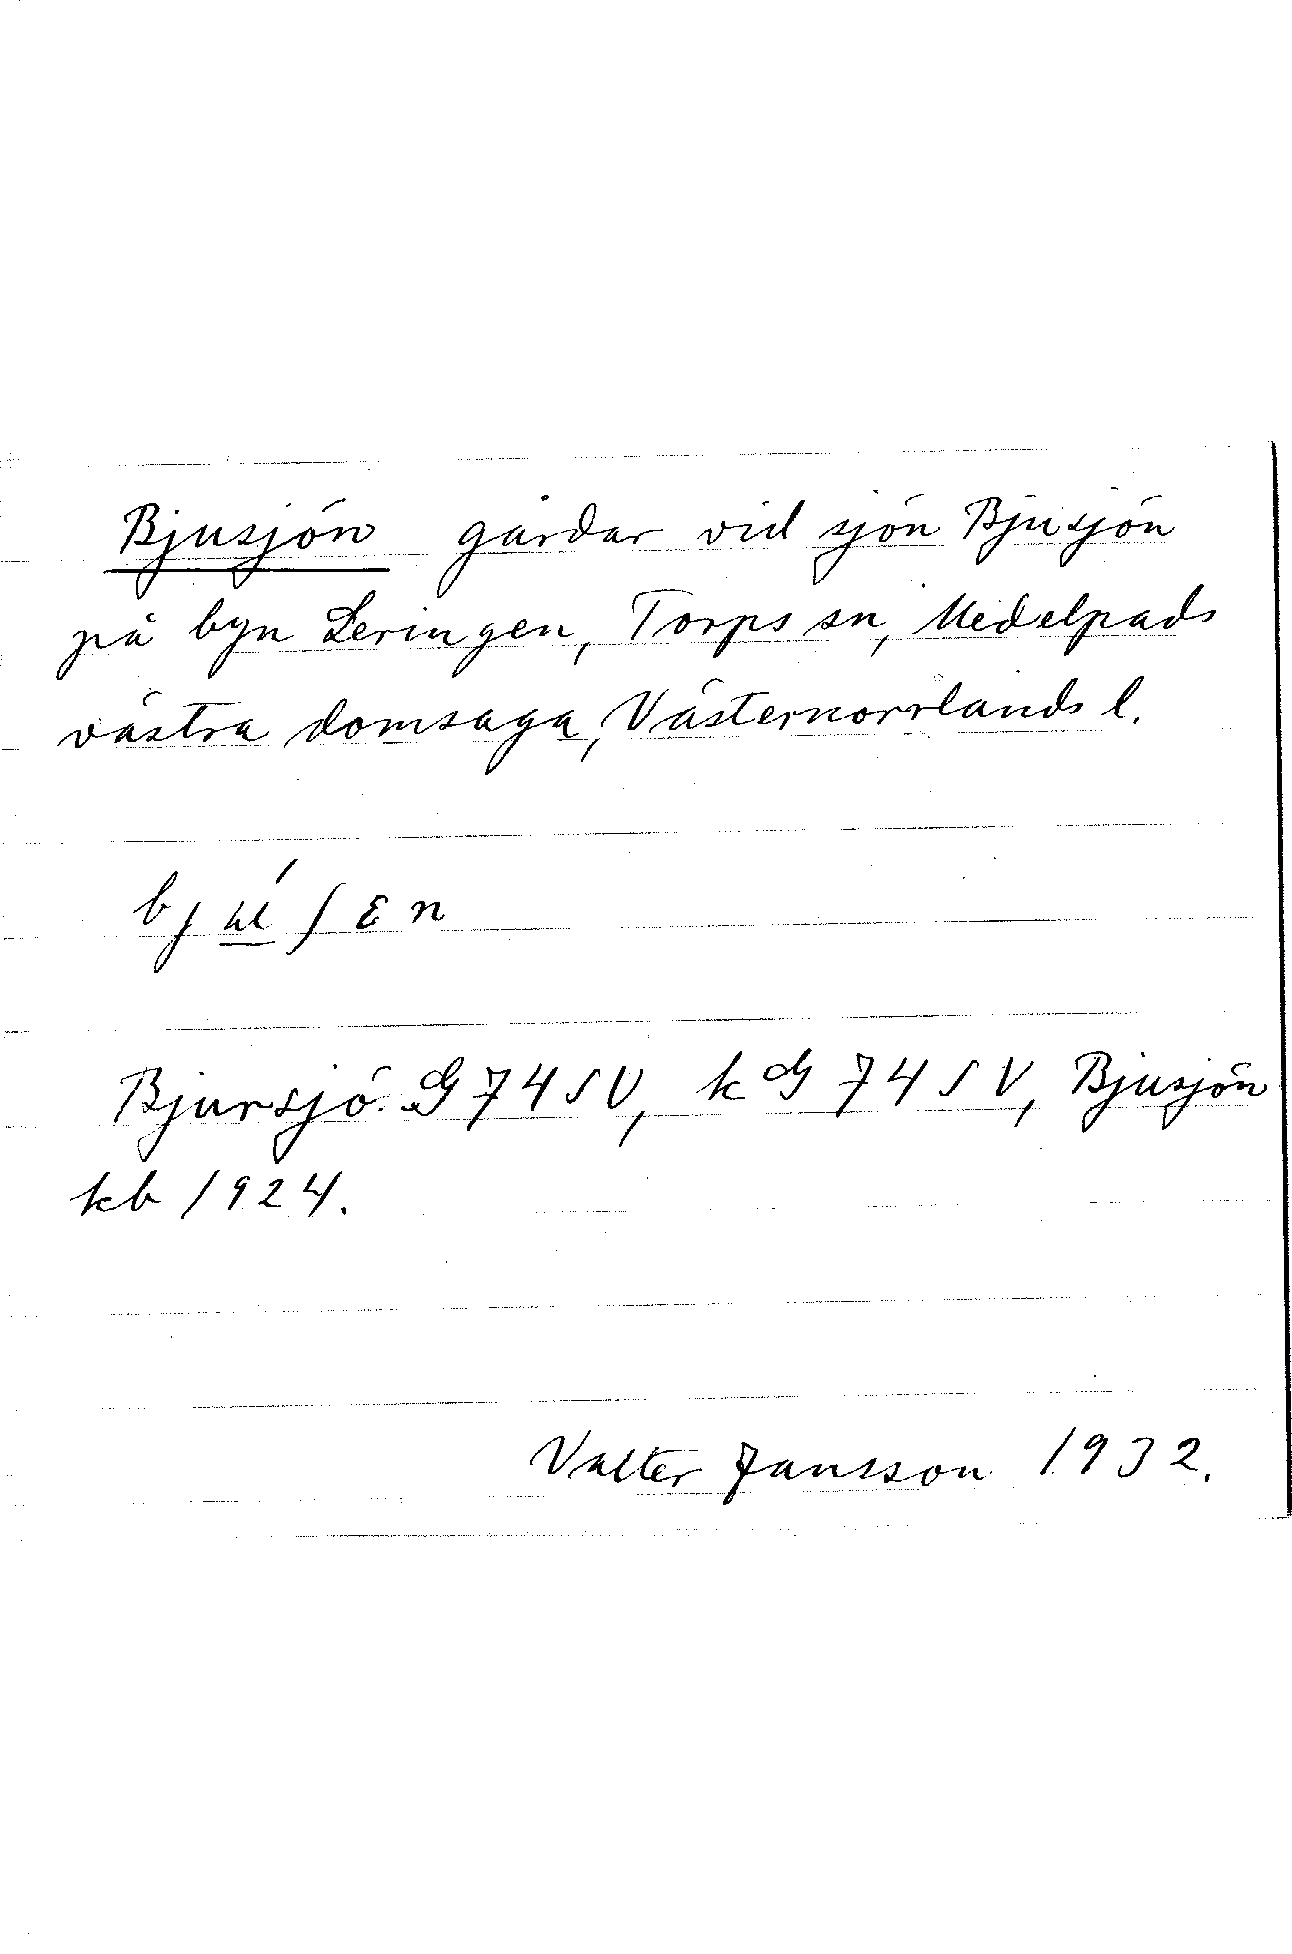 Bjusjön gårdar vid sjön Bjusjön
på byn Leringen, Torps sn, Medelpads
västra domsaga, Västernorrlands l.
bjúʃɛn
Bjursjö G 74 SV, kG 74 SV, Bjusjön
kb 1924.
Valter Jansson 1932.